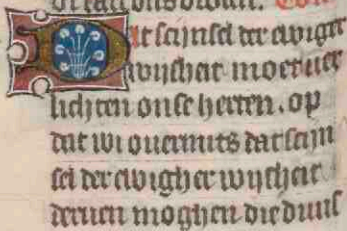 at scijnsel der ewiger
wijsheit moet ver
lichten onse herten. op
dat wi ouermits dat scijn
sel der ewigher wijsheit
deruen moghen die duus